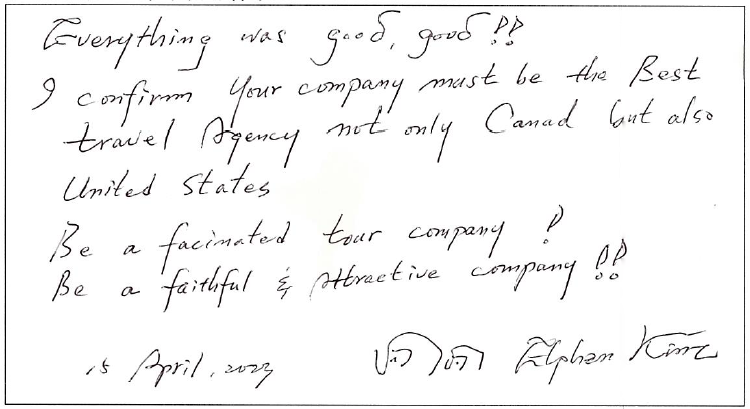 Everything was good, good!!
I confirm your company must be the Best
travel Agency not only Canad but also
United States
Be a facinated tour company !
Be a faithful & Attractive company !!
15 April, 2023 Elphan